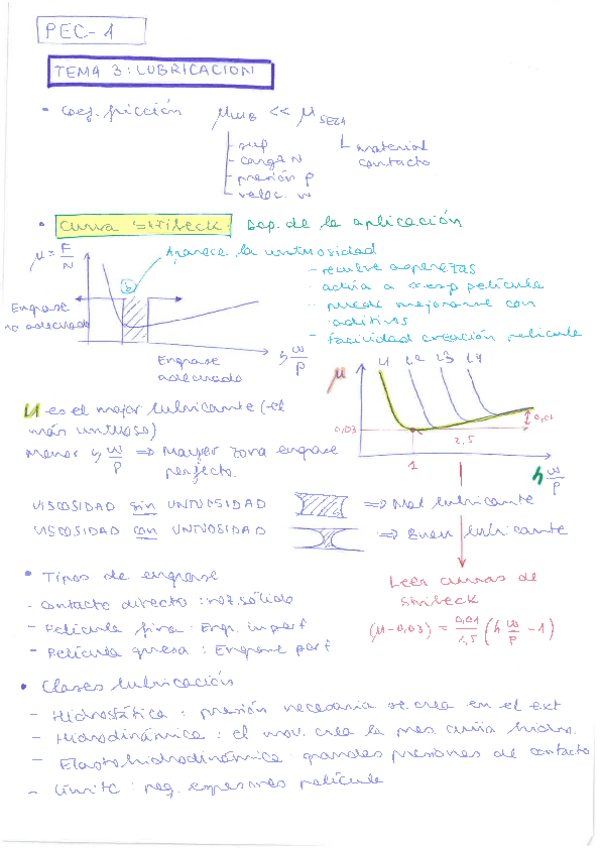 PEC-1
TEMA 3: LUBRICACION
• Coef. fricción μ LUB << μ SECA
- sup
- carga N
- presión p
- veloc. w
└ material contacto
• Curva Stribeck: Dep. de la aplicación
μ = F/N
Aparece la untuosidad
- recubre asperezas
- película
- puede mejorarse con aditivos
- facilidad creación película
Engrase no adecuado
Engrase adecuado
η w/p
L1 L2 L3 L4
μ
0,03
0,01
2,5
1
η w/p
L1 es el mejor lubricante (el más untuoso)
Menor η w/p => Mayor zona engrase perfecto.
VISCOSIDAD sin UNTUOSIDAD => Mal lubricante
VISCOSIDAD con UNTUOSIDAD => Buen lubricante
• Tipos de engrase
- Contacto directo: roz. sólido
- Película fina: Engr. imperf
- Película gruesa: Engrase perf
Leer curvas de Stribeck
(μ-0,03) = 0,01/2,5 (η w/p - 1)
• Clases lubricación
- Hidrostática: presión necesaria se crea en el ext
- Hidrodinámica: el mov. crea la pres. cuña hidro.
- Elastohidrodinámica: grandes presiones de contacto
- Límite: peq. espesores película